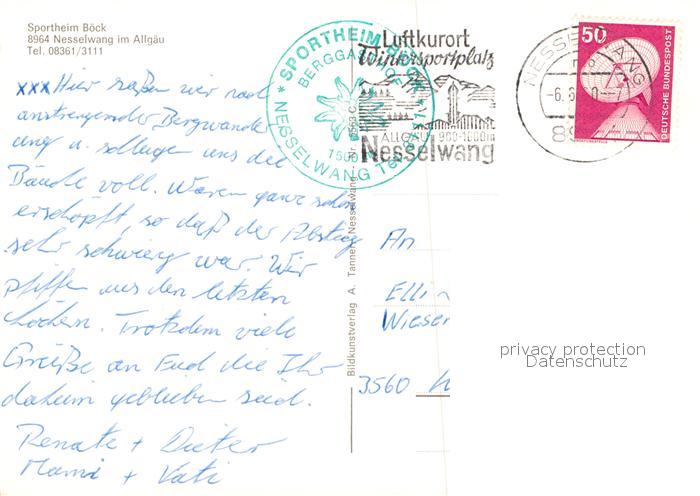 Sportheim Böck
8964 Nesselwang im Allgäu
Tel. 08361/3111
xxx Hier saßen wir nach
anstrengender Bergwande
ung u. schlugen uns die
Bäuche voll. Waren ganz schön
erschöpft, so daß der Abstieg
sehr schwierig war. Wir
pfiffen aus den letzten
Löchern. Trotzdem viele
Grüße an Euch die Ihr
daheim geblieben seid.
Renate + Dieter
Mami + Vati
SPORTHEIM BÖCK
BERGGAST
1500
NESSELWANG Tel.
Luftkurort
Wintersportplatz
ALLGÄU 900-1600m
Nesselwang
NESSELWANG
-6.6. 0-7
89
50
DEUTSCHE BUNDESPOST
Bildkunstverlag A. Tanner, Nesselwang
An
Elli
Wieser
3560
privacy protection
Datenschutz